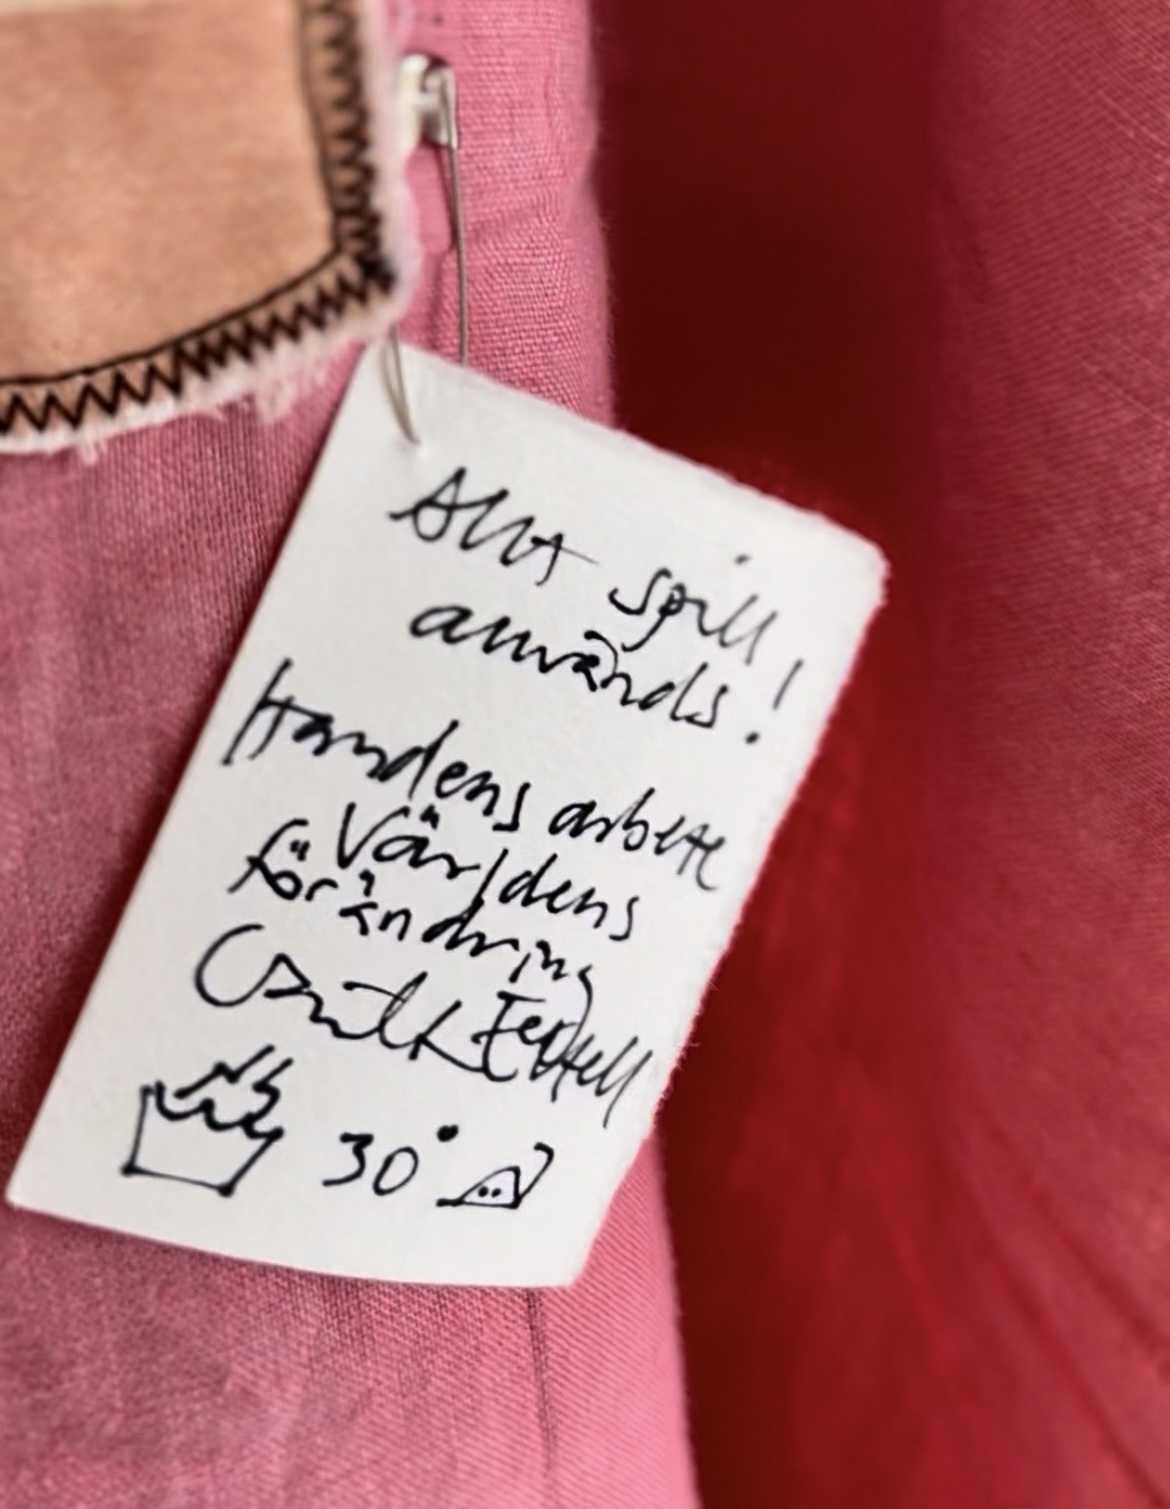 Allt spill
används!
Handens arbete
Världens
förändring
30°